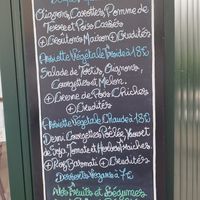 Oignons, Carottes, Pomme de
Terre et Pois Cassés
+ Croûtons Maison + Crudités
Assiette Végétale Froide à 18€
Salade de Tortis, Oignons,
Courgettes et Melon
+ Crème de Pois Chiches
+ Crudités
Assiette Végétale Chaude à 18€
Demi Courgettes Poêlée, Yaourt
de Soja, Tomate et Herbes fraîches
+ Riz Basmati + Crudités
Desserts Végans à 7€
Nos Fruits et Légumes